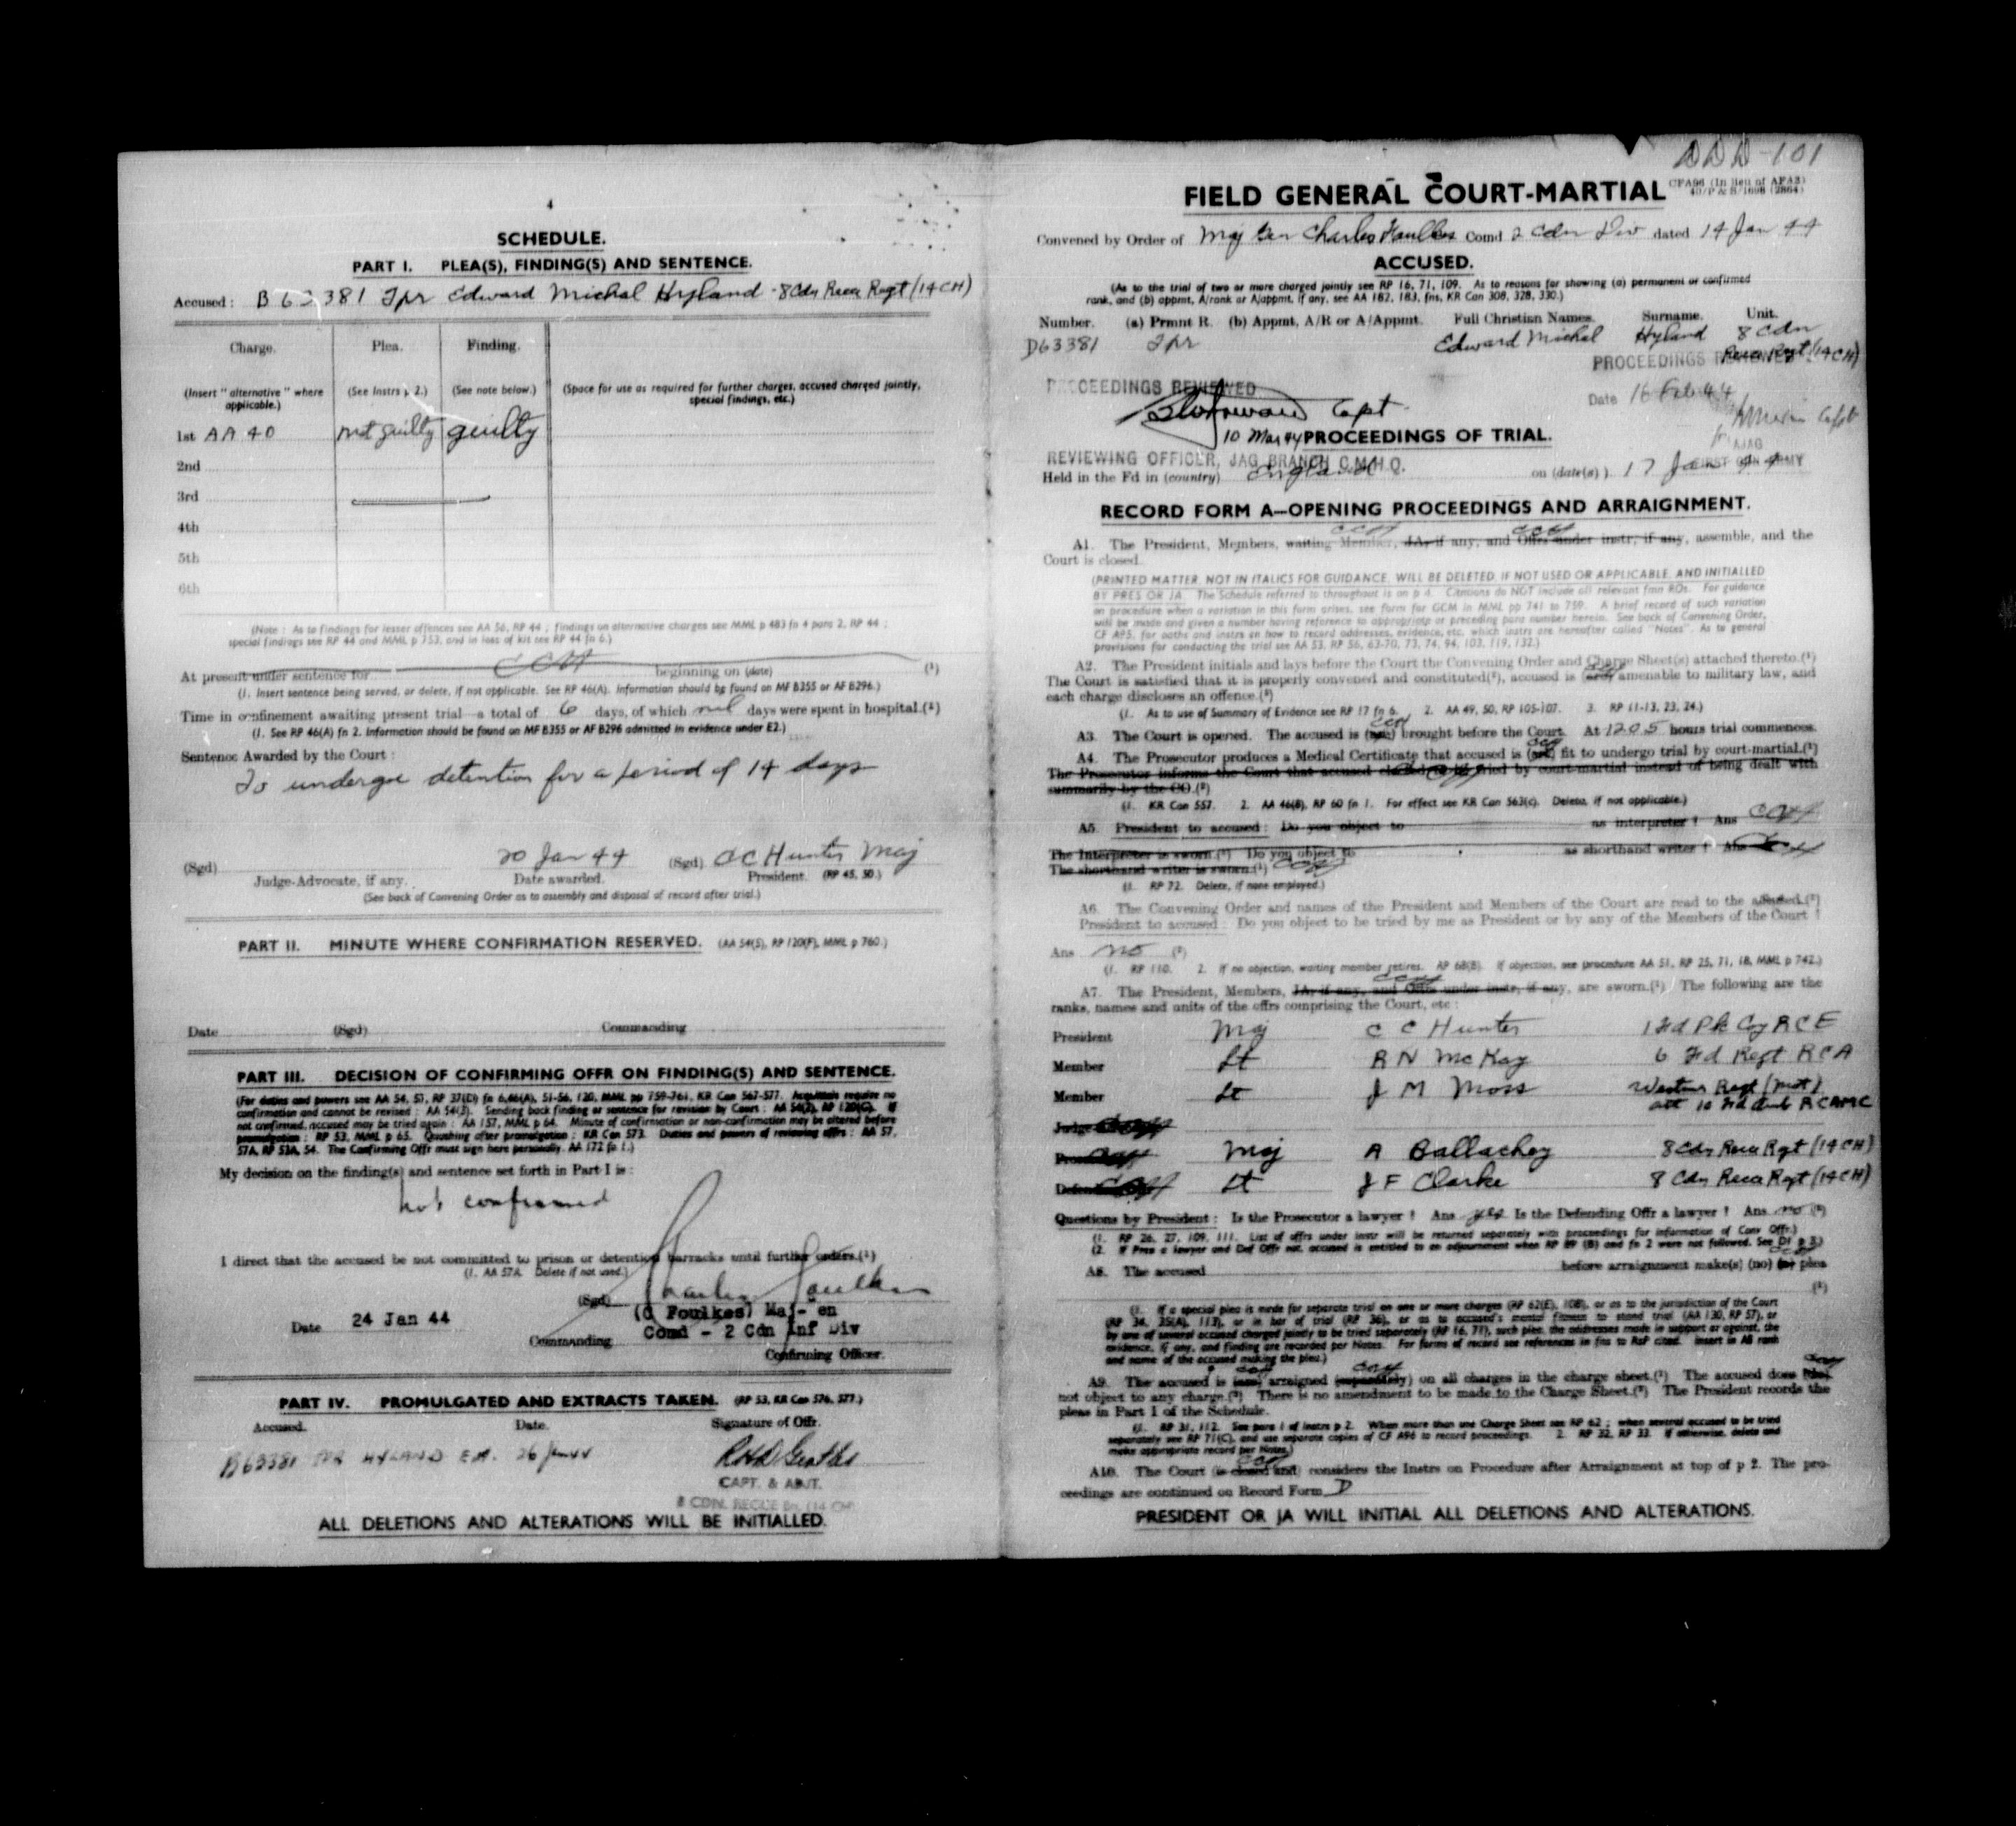 4
SCHEDULE.
PART I. PLEA(S), FINDING(S) AND SENTENCE.
Accused : B 63381 Tpr Edward Michal Hyland - 8 Cdn Recce Regt (14 CH)
Charge. Plea. Finding.
(Insert "alternative" where applicable.) (See Instrs p 2.) (See note below.) (Space for use as required for further charges, accused charged jointly, special findings, etc.)
1st AA 40 not guilty guilty
2nd
3rd
4th
5th
6th
(Note : As to findings for lesser offences see AA 56, RP 44 ; findings on alternative charges see MML p 483 fn 4 para 2, RP 44 ;
special findings see RP 44 and MML p 753, and in loss of kit see RP 44 fn 6.)
At present under sentence for CCH beginning on (date) (¹)
(1. Insert sentence being served, or delete, if not applicable. See RP 46(A). Information should be found on MF B355 or AF B296.)
Time in confinement awaiting present trial—a total of 6 days, of which nil days were spent in hospital.(¹)
(1. See RP 46(A) fn 2. Information should be found on MF B355 or AF B296 admitted in evidence under E2.)
Sentence Awarded by the Court :
To undergo detention for a period of 14 days
(Sgd) 20 Jan 44 (Sgd) C C Hunter Maj
Judge-Advocate, if any. Date awarded. President. (RP 45, 50.)
(See back of Convening Order as to assembly and disposal of record after trial.)
PART II. MINUTE WHERE CONFIRMATION RESERVED. (AA 54(5), RP 120(F), MML p 760.)
Date (Sgd) Commanding
PART III. DECISION OF CONFIRMING OFFR ON FINDING(S) AND SENTENCE.
(For duties and powers see AA 54, 57, RP 37(D) fn 6,46(A), 51-56, 120, MML pp 759-761, KR Can 567-577. Acquittals require no
confirmation and cannot be revised : AA 54(3). Sending back finding or sentence for revision by Court : AA 54(2), RP 120(C). If
not confirmed, accused may be tried again : AA 157, MML p 64. Minute of confirmation or non-confirmation may be altered before
promulgation : RP 53, MML p 65. Quashing after promulgation : KR Can 573. Duties and powers of reviewing offrs : AA 57,
57A, RP 53A, 54. The Confirming Offr must sign here personally. AA 172 fn 1.)
My decision on the finding(s) and sentence set forth in Part I is :
not confirmed
I direct that the accused be not committed to prison or detention barracks until further orders.(¹)
(1. AA 57A. Delete if not used.)
(Sgd) Charles Foulkes
(C Foulkes) Maj- en
Date 24 Jan 44 Commanding Comd - 2 Cdn Inf Div
Confirming Officer.
PART IV. PROMULGATED AND EXTRACTS TAKEN. (RP 53, KR Can 576, 577.)
Accused. Date. Signature of Offr.
B63381 TPR HYLAND E.M. 26 Jan 44
CAPT. & ADJT.
8 CDN. RECCE Bn. (14 CH)
ALL DELETIONS AND ALTERATIONS WILL BE INITIALLED.
DDD-101
FIELD GENERAL COURT-MARTIAL
CFA96 (In lieu of AFA3)
40/P & S/1698 (2864)
Convened by Order of Maj Gen Charles Foulkes Comd 2 Cdn Div dated 14 Jan 44
ACCUSED.
(As to the trial of two or more charged jointly see RP 16, 71, 109. As to reasons for showing (a) permanent or confirmed
rank, and (b) appmt, A/rank or A/appmt, if any, see AA 182, 183, fns, KR Can 308, 328, 330.)
Number. (a) Prmnt R. (b) Appmt, A/R or A/Appmt. Full Christian Names. Surname. Unit.
D63381 Tpr Edward Michal Hyland 8 Cdn
Recce Regt (14 CH)
PROCEEDINGS REVIEWED
PROCEEDINGS REVIEWED
Date 16 Feb 44
Capt
Capt
10 Mar 44 PROCEEDINGS OF TRIAL.
AJAG
REVIEWING OFFICER, JAG BRANCH C.M.H.Q.
FIRST CDN ARMY
Held in the Fd in (country) England on (date(s)) 17 Jan 44
RECORD FORM A—OPENING PROCEEDINGS AND ARRAIGNMENT.
A1. The President, Members, waiting Member, JA, if any, and Offrs under instr, if any, assemble, and the
Court is closed.
(PRINTED MATTER, NOT IN ITALICS FOR GUIDANCE, WILL BE DELETED, IF NOT USED OR APPLICABLE, AND INITIALLED
BY PRES OR JA. The Schedule referred to throughout is on p 4. Citations do NOT include all relevant fmn ROs. For guidance
on procedure when a variation in this form arises, see form for GCM in MML pp 741 to 759. A brief record of such variation
will be made and given a number having reference to appropriate or preceding para number herein. See back of Convening Order,
CF A95, for oaths and instrs on how to record addresses, evidence, etc, which instrs are hereafter called "Notes". As to general
provisions for conducting the trial see AA 53, RP 56, 63-70, 73, 74, 94, 103, 119, 132.)
A2. The President initials and lays before the Court the Convening Order and Charge Sheet(s) attached thereto.(¹)
The Court is satisfied that it is properly convened and constituted(²), accused is (are) amenable to military law, and
each charge discloses an offence.(³)
(1. As to use of Summary of Evidence see RP 17 fn 6. 2. AA 49, 50, RP 105-107. 3. RP 11-13, 23, 24.)
A3. The Court is opened. The accused is (are) brought before the Court. At 1205 hours trial commences.
A4. The Prosecutor produces a Medical Certificate that accused is (are) fit to undergo trial by court-martial.(¹)
The Prosecutor informs the Court that accused elected to be tried by court-martial instead of being dealt with
summarily by the CO.(²)
(1. KR Can 557. 2. AA 46(8), RP 60 fn 1. For effect see KR Can 563(c). Delete, if not applicable.)
A5. President to accused : Do you object to as interpreter ? Ans CCH
The Interpreter is sworn.(¹) Do you object to as shorthand writer ? Ans
The shorthand writer is sworn.(¹) CCH
(1. RP 72. Delete, if none employed.)
A6. The Convening Order and names of the President and Members of the Court are read to the accused.(¹)
President to accused : Do you object to be tried by me as President or by any of the Members of the Court ?
Ans no (²)
(1. RP 110. 2. If no objection, waiting member retires. RP 68(B). If objection, see procedure AA 51, RP 25, 71, 18, MML p 742.)
A7. The President, Members, JA, if any, and Offrs under instr, if any, are sworn.(¹) The following are the
ranks, names and units of the offrs comprising the Court, etc :
President Maj C C Hunter 1 Fd Pk Coy RCE
Member Lt R N McKay 6 Fd Regt RCA
Member Lt J M Moss Western Regt (Mot)
att 10 Fd Amb RCAMC
Judge
Maj A Ballachey 8 Cdn Recce Regt (14 CH)
Lt J F Clarke 8 Cdn Recce Regt (14 CH)
Questions by President : Is the Prosecutor a lawyer ? Ans yes Is the Defending Offr a lawyer ? Ans no (²)
(1. RP 26, 27, 109, 111. List of offrs under instr will be returned separately with proceedings for information of Conv Offr.)
(2. If Pros a lawyer and Def Offr not, accused is entitled to an adjournment when RP 89 (B) and fn 2 were not followed. See D1 p 3.)
A8. The accused before arraignment make(s) (no) (a) plea
(¹)
(1. If a special plea is made for separate trial on one or more charges (RP 62(E), 108), or as to the jurisdiction of the Court
(RP 34, 35(A), 113), or in bar of trial (RP 36), or as to accused's mental fitness to stand trial (AA 130, RP 57), or
by one of several accused charged jointly to be tried separately (RP 16, 71), such plea, the addresses made in support or against, the
evidence, if any, and finding are recorded per Notes. For forms of record see references in fns to RsP cited. Insert in A8 rank
and name of the accused making the plea.)
A9. The accused is (are) arraigned (separately) on all charges in the charge sheet.(¹) The accused does (do)
not object to any charge.(²) There is no amendment to be made to the Charge Sheet.(²) The President records the
pleas in Part 1 of the Schedule.
(1. RP 31, 112. See para 1 of Instrs p 2. When more than one Charge Sheet see RP 62 ; when several accused to be tried
separately see RP 71(C), and use separate copies of CF A96 to record proceedings. 2. RP 32, RP 33. If otherwise, delete and
make appropriate record per Notes.)
A10. The Court (is closed and) considers the Instrs on Procedure after Arraignment at top of p 2. The pro-
ceedings are continued on Record Form D
PRESIDENT OR JA WILL INITIAL ALL DELETIONS AND ALTERATIONS.